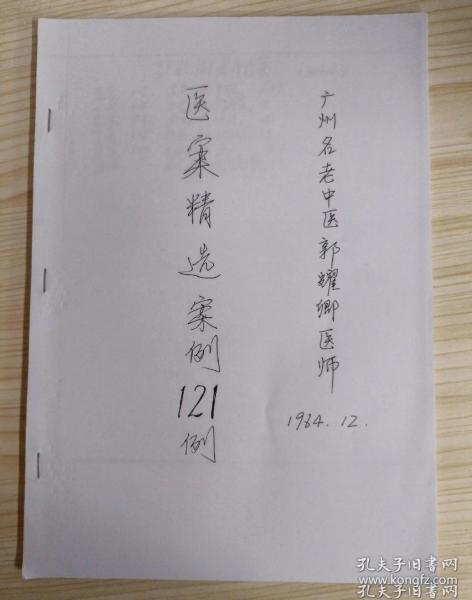 广州名老中医郭耀卿医师
1964.12.
医案精选案例121例
孔夫子旧书网
www.kongfz.com
孔夫子旧书网